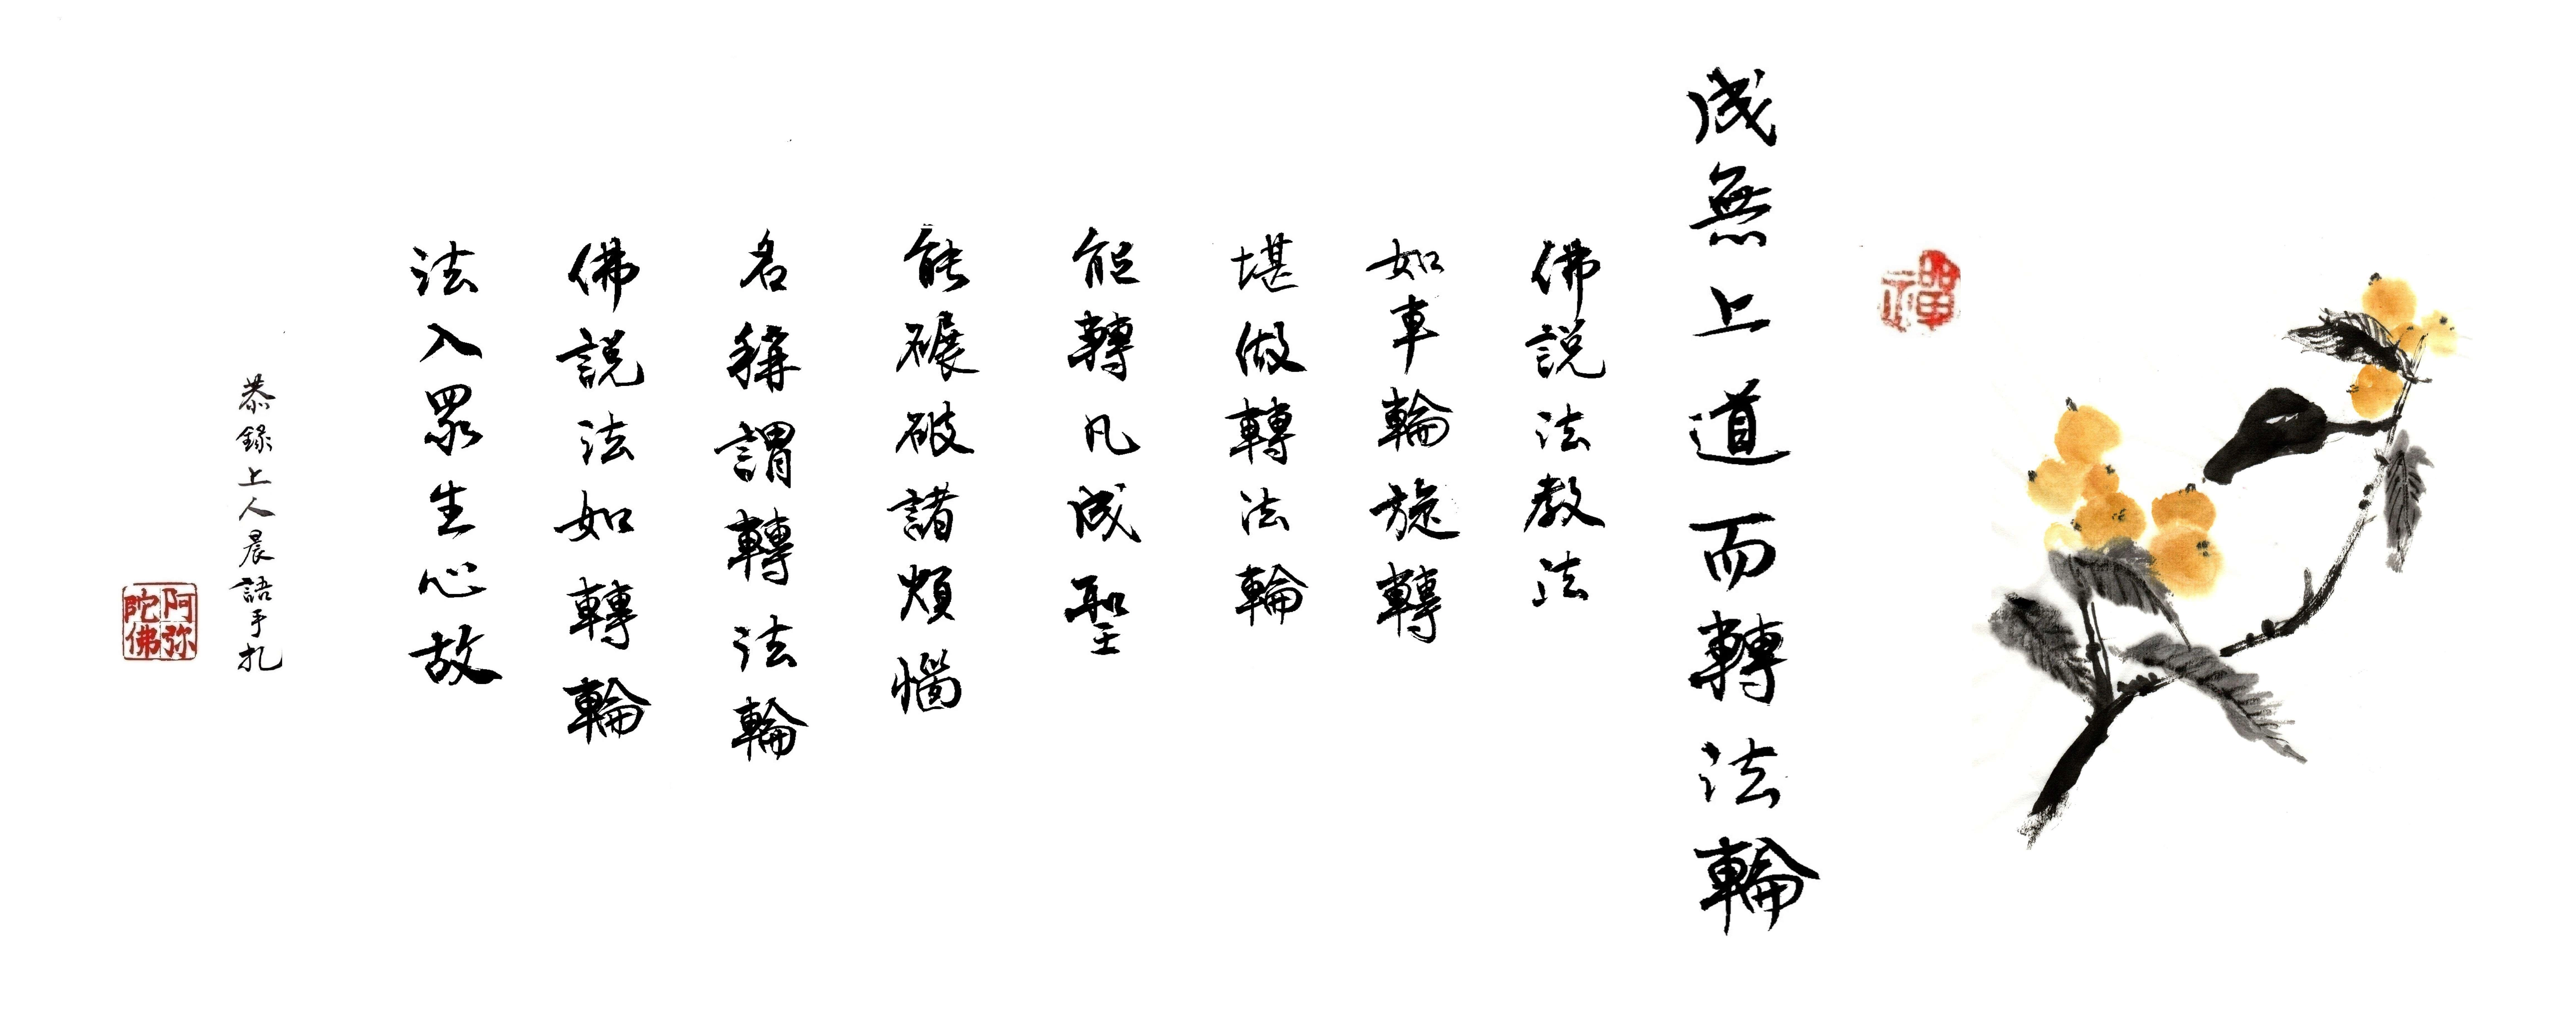 禪
成無上道而轉法輪
佛說法教法
如車輪旋轉
堪做轉法輪
能轉凡成聖
能碾破諸煩惱
名稱謂轉法輪
佛說法如轉輪
法入眾生心故
恭錄上人晨語手札
阿弥陀佛